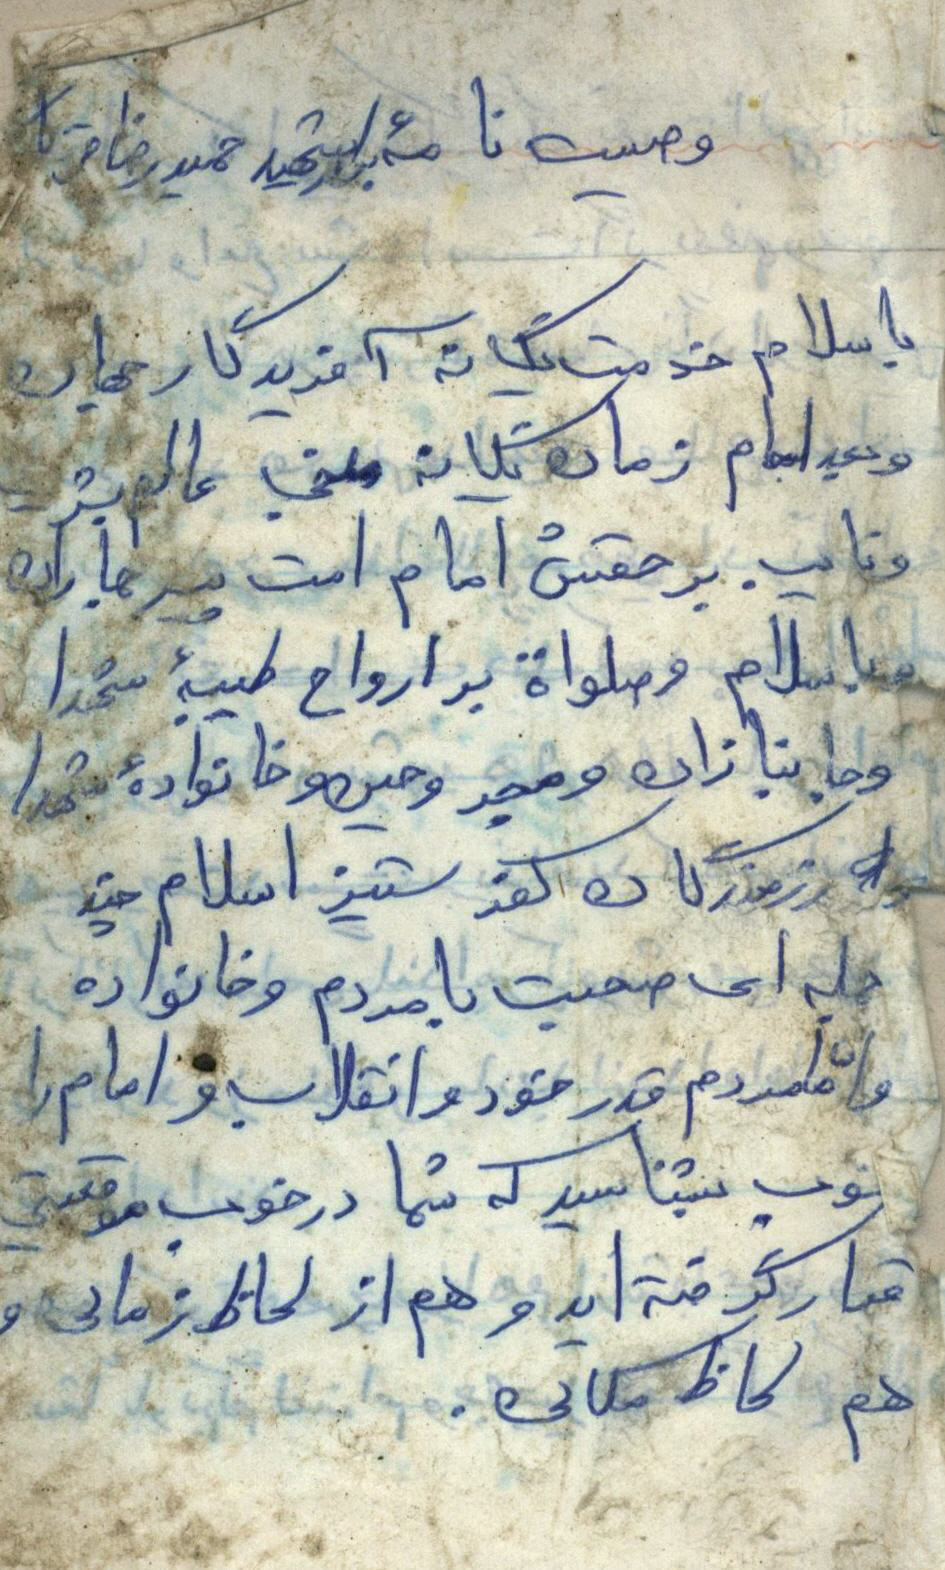 وصیت نامهٔ برادر شهید حمیدرضا
با سلام خدمت یگانه آفریدگار جهان
و مهدی امام زمان یگانه منجی عالم بشریت
و نایب بر حقش امام امت پیر جماران
و با سلام و صلواة بر ارواح طیبهٔ شهدا
و جانبازان و خانوادهٔ شهدا
رزمندگان کفر ستیز اسلام چند
جمله ای صحبت با مردم و خانواده
و اما مردم قدر خود و انقلاب و امام را
خوب بشناسید که شما در خوب موقعیتی
قرار گرفته اید و هم از لحاظ زمانی و
هم لحاظ مکانی.